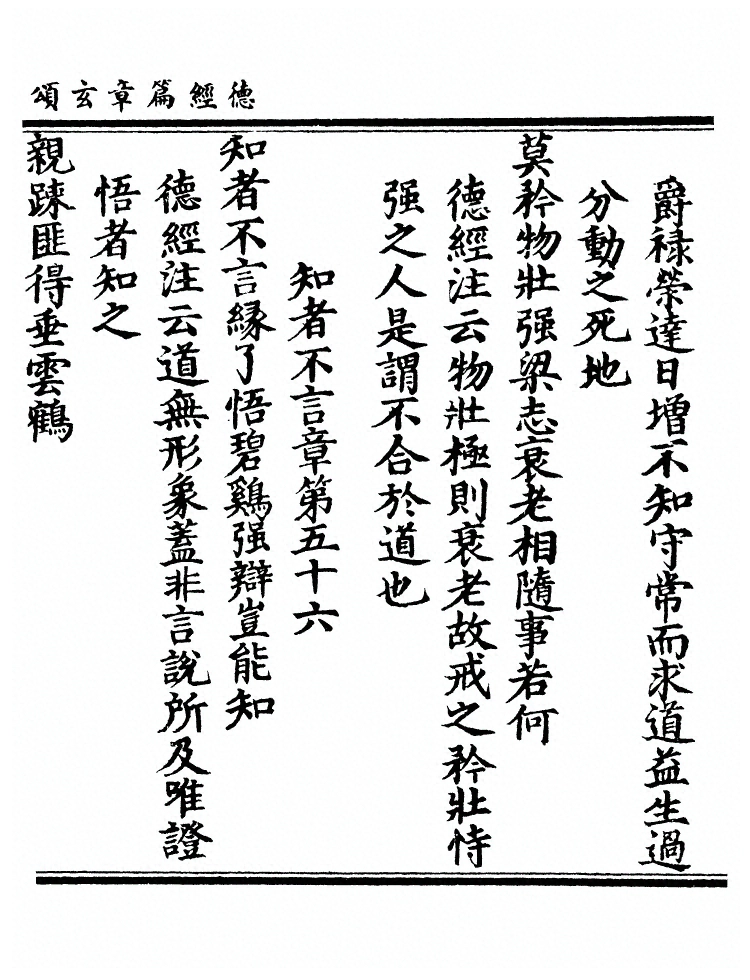 德經篇章玄頌
爵祿榮達日增不知守常而求道益生過
分動之死地
莫矜物壯强梁志衰老相隨事若何
德經注云物壯極則衰老故戒之矜壯恃
强之人是謂不合於道也
知者不言章第五十六
知者不言緣了悟碧鷄强辯豈能知
德經注云道無形象蓋非言說所及唯證
悟者知之
親踈匪得垂雲鶴